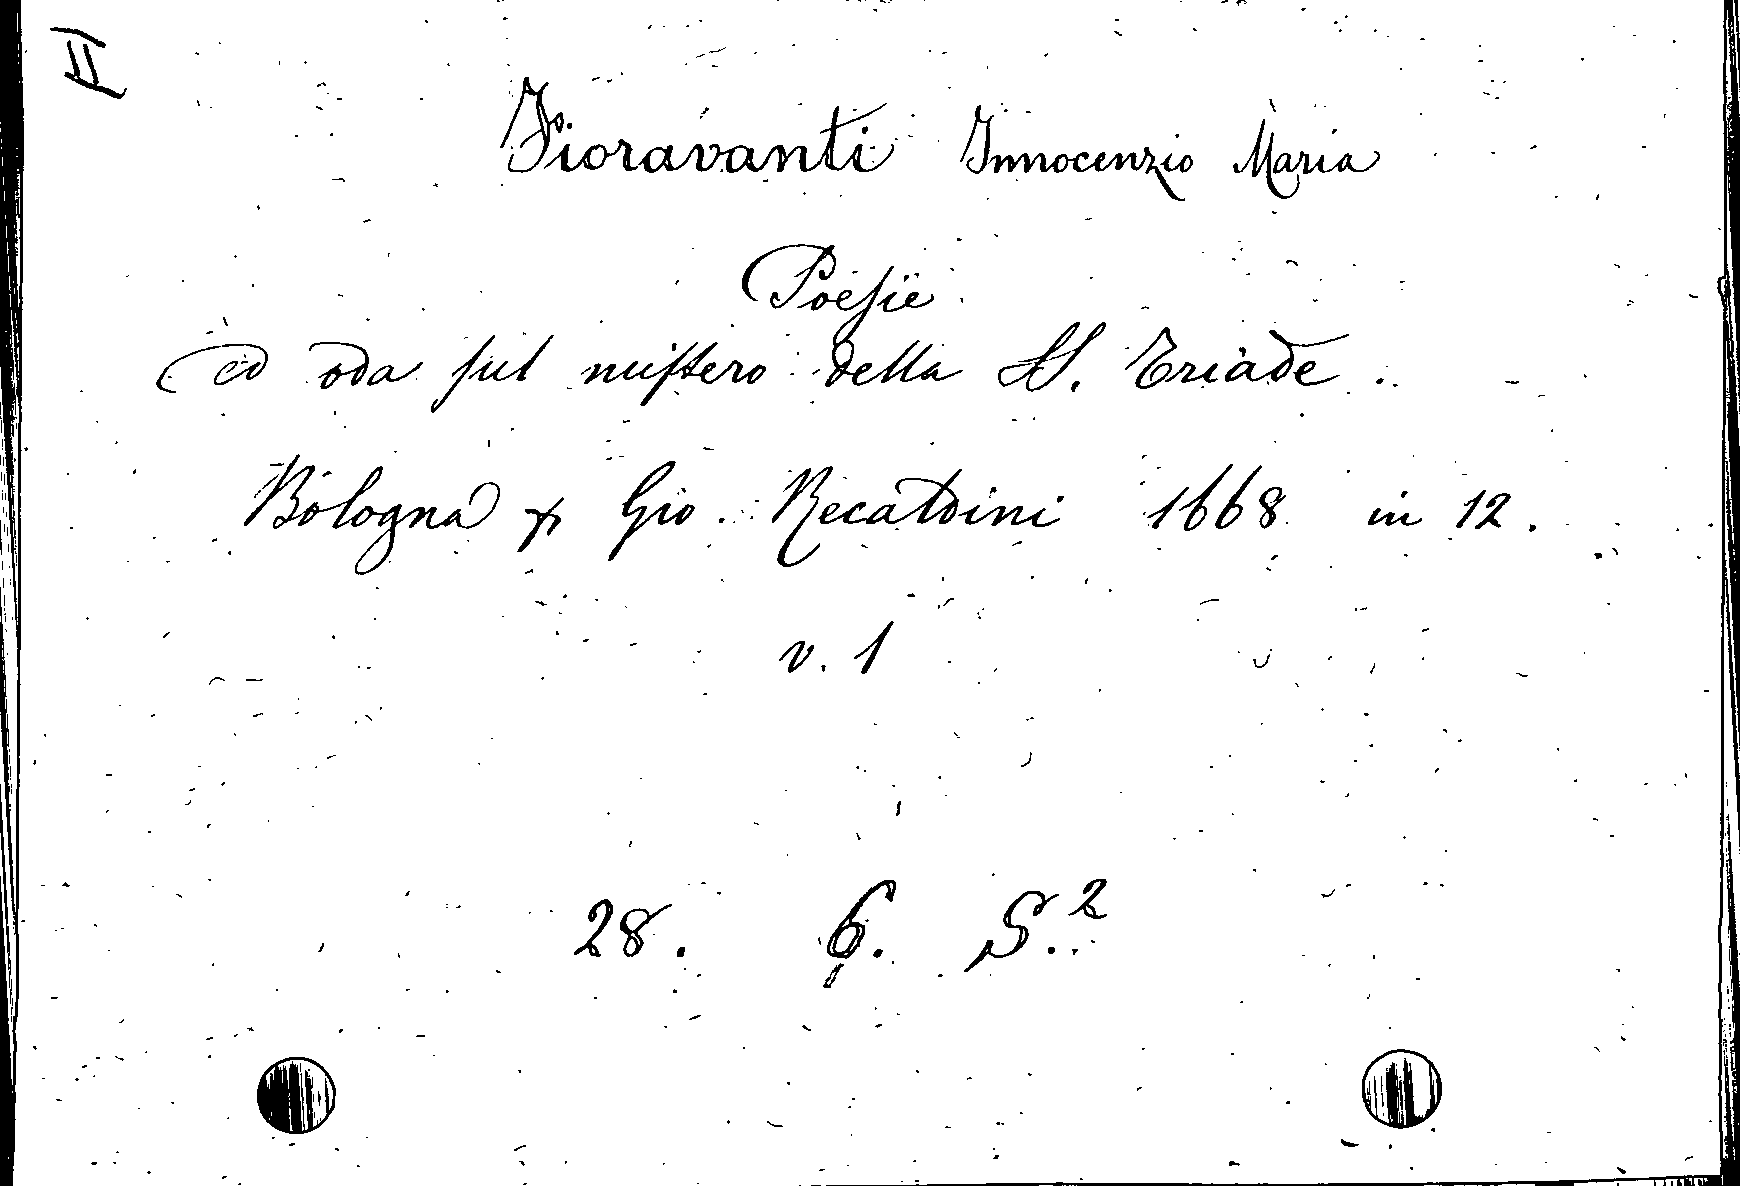 II
Fioravanti Innocenzio Maria
Poesie
ed oda sul mistero della SS. Triade.
Bologna p Gio. Recaldini 1668 in 12.
v. 1
28. 6. S.²